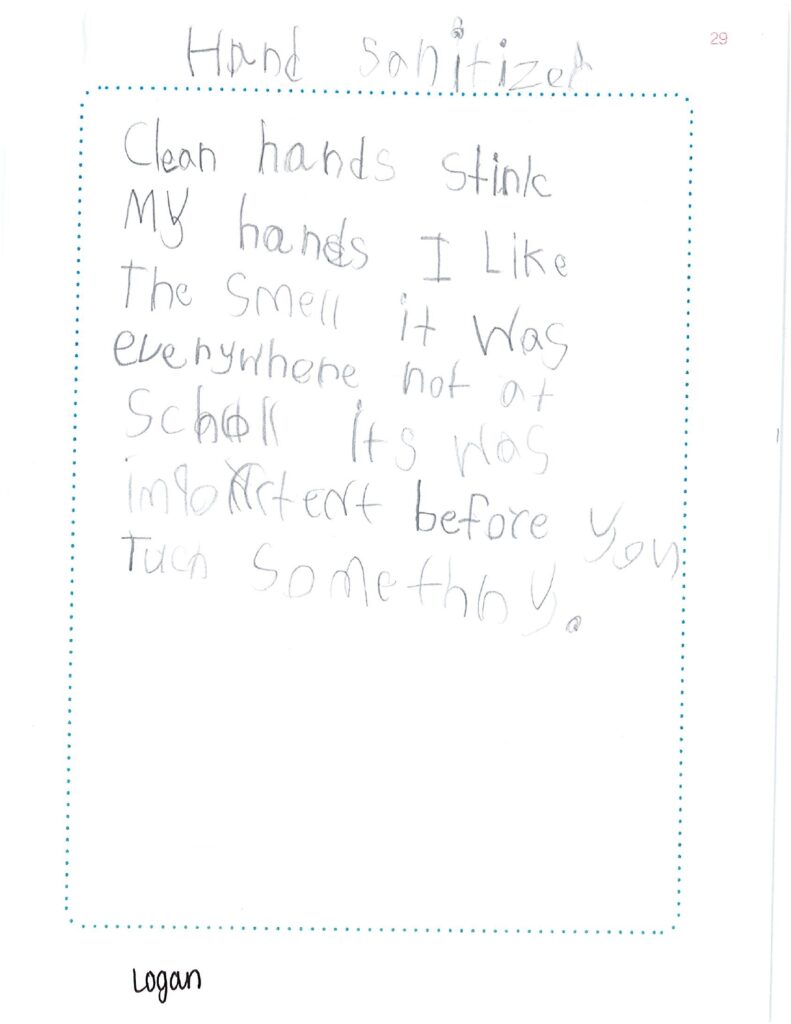 29
Hand sanitizer
Clean hands stink
My hands I Like
The smell it was
everywhere not at
scholl its was
before you
Tuch somethny.
Logan